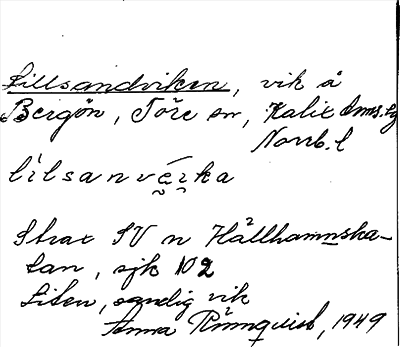 Lillsandviken, vik å
Bergön, Töre sn, Kalix dms. lg
Norrb. l
lílsanvé̬i̯ka
Strax SV n Hållhamnska-
tan, sjk 102
Liten, sandig vik
Anna Rönnquist, 1949